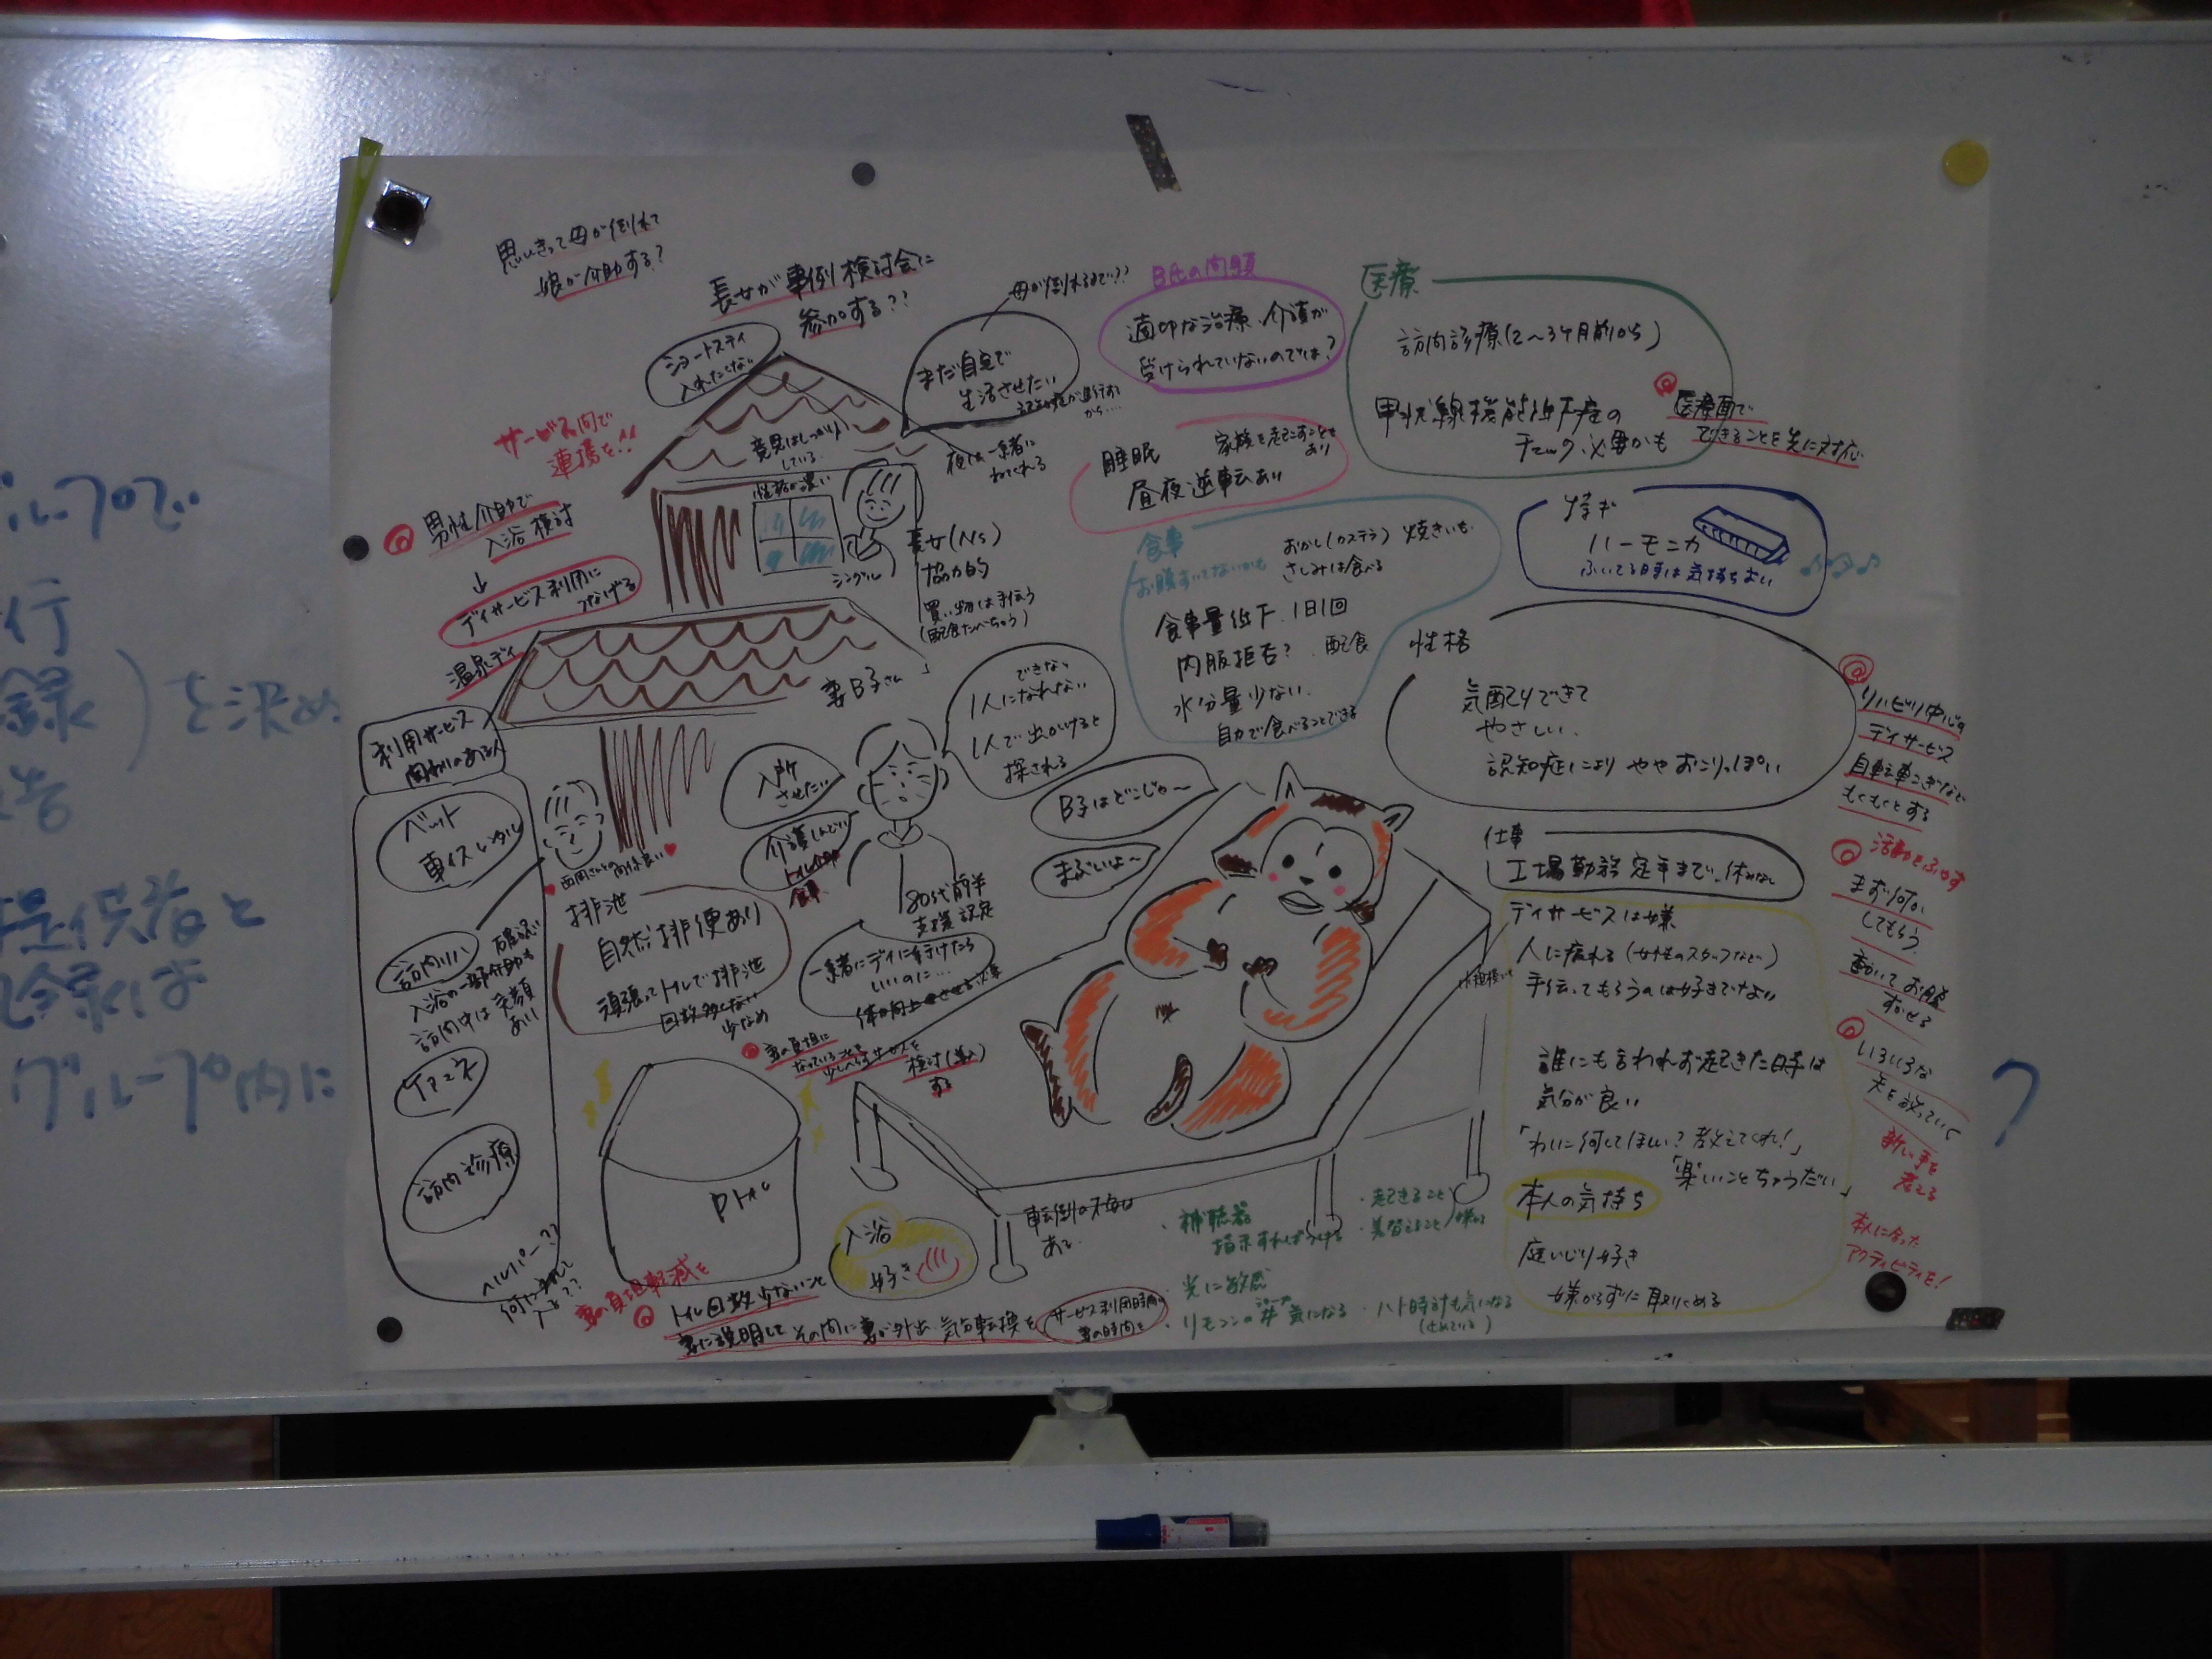 思いきって母が倒れて
娘が介助する?
長女が事例検討会に
参加する??
ショートステイ
入れたくない
母が倒れるまで??
まだ自宅で
生活させたい
認知症が進行する
から…
B氏の問題
適切な治療、介護が
受けられていないのでは?
医療
訪問診療(2〜3ヶ月前から)
甲状腺機能低下症の
チェック、必要かも
医療面で
できることを先に対応
サービス間で
連携を!!
意見はしっかり
している
性格が濃い
夜は一緒に
ねてくれる
睡眠
家族を起こすことも
あり
昼夜逆転あり
男性介助で
入浴検討
↓
デイサービス利用に
つなげる
温泉デイ
シングル
長女(Ns)
協力的
買い物は手伝う
(配食たべちゃう)
食事
お腹すいてないかも
おかし(カステラ) 焼きいも
さしみは食べる
食事量低下、1日1回
内服拒否? 配食
水分量少ない
自力で食べることできる
特ギ
ハーモニカ
ふいてる時は気持ちよい
妻B子さん
性格
気配りできて
やさしい
認知症により ややおこりっぽい
仕事
工場勤務 定年まで、休みなし
利用サービス
関わりのある人
ベット
車イスレンタル
訪問リハ
入浴の一部介助も
訪問中は笑顔
あり
ケアマネ
訪問診療
ヘルパー??
西岡さんとの関係良い
排泄
自然排便あり
頑張ってトイレで排泄
少なめ
入所
させたい
介護しんどい
できない
1人になれない
1人で出かけると
探される
80代前半
支援認定
一緒にデイに行けたら
いいのに…
B子はどこじゃ〜
まぶいよ〜
妻の負担に
検討(導入)
する
Pトイレ
入浴
好き
転倒の不安も
あり
デイサービスは嫌
人に疲れる(女性のスタッフなど)
手伝ってもらうのは好きでない
誰にも言われず起きた時は
気分が良い
「わいに何してほしい?教えてくれ!」
「楽しいことちょうだい」
本人の気持ち
庭いじり好き
嫌がらずに取りくめる
リハビリ中心の
デイサービス
自転車こぎなど
もくもくとする
活動をふやす
まず何か
してもらう
動いてお腹
すかせる
いろいろな
矢を放っていく
新しい事を
考える
本人に合った
アクティビティを!
・補聴器
指示すればつける
・起きること
・着替えること 嫌がる
・光に敏感
・リモコンの 気になる ・ハト時計も気になる
(止めている)
妻の負担軽減を
トイレ回数少ないこと
妻に説明して その間に妻が外出、気分転換を
サービス利用時間
妻の時間を
グループで
行
録)を決め
グループ内に
?